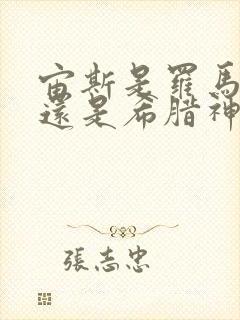 宙斯是羅馬
還是希腊神
張志忠